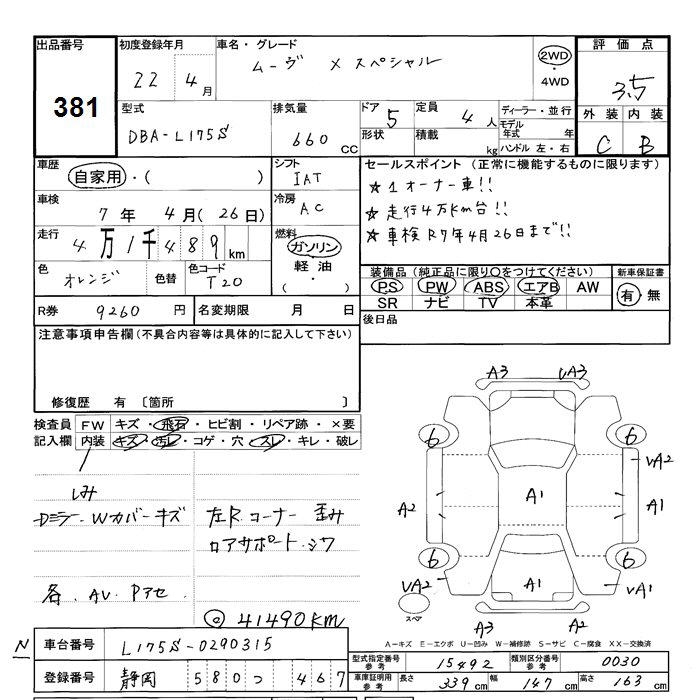 出品番号
381
初度登録年月
22 4月
車名・グレード
ムーヴ X スペシャル
2WD
・
4WD
評価点
3.5
外装 内装
C B
型式
DBA-L175S
排気量
660 CC
ドア 5
形状
定員 4人
積載 kg
ディーラー・並行
モデル
年式 年
ハンドル 左・右
車歴
自家用・( )
シフト
IAT
車検
7年 4月(26日)
冷房
AC
走行
4万1千489km
燃料
ガソリン
軽油
( ・ )
色
オレンジ
色替
色コード
T20
R券 9260 円
名変期限 月 日
セールスポイント (正常に機能するものに限ります)
☆1オーナー車!!
☆走行4万km台!!
☆車検R7年4月26日まで!!
装備品 (純正品に限り○をつけてください)
PS PW ABS エアB AW
SR ナビ TV 本革
新車保証書
有・無
後日品
注意事項申告欄 (不具合内容等は具体的に記入して下さい)
修復歴 有 〔箇所 〕
検査員
記入欄
FW キズ・飛石・ヒビ割・リペア跡・×要
内装 キズ・汚レ・コゲ・穴・スレ・キレ・破レ
しみ
Dミラー Wカバーキズ
左R.コーナー 歪み
ロアサポート シワ
各. AV. Pアセ
@ 41490km
A3 vA3
6 6
vA2
A2 A1 A1
6 6
vA2 A1 vA1
スペア
A3 A2
A-キズ E-エクボ U-凹み W-補修跡 S-サビ C-腐食 XX-交換済
N
車台番号 L175S-0290315
登録番号 静岡 580つ 467
型式指定番号
参考
15492
類別区分番号
参考
0030
車庫証明用
参考
長さ 339cm 幅 147cm 高さ 163cm